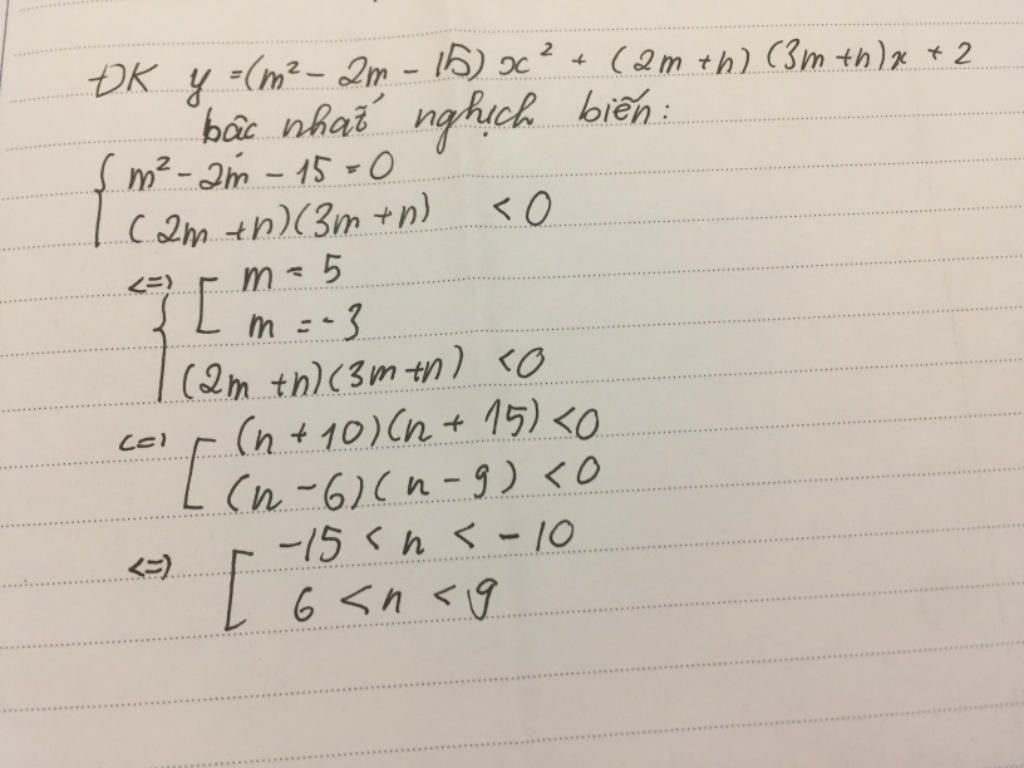 ĐK y = (m² - 2m - 15) x² + (2m + n) (3m + n)x + 2
bậc nhất nghịch biến:
{ m² - 2m - 15 = 0
(2m + n)(3m + n) < 0
<=> { [ m = 5
m = -3
(2m + n)(3m + n) < 0
<=> [ (n + 10)(n + 15) < 0
(n - 6)(n - 9) < 0
<=> [ -15 < n < -10
6 < n < 9